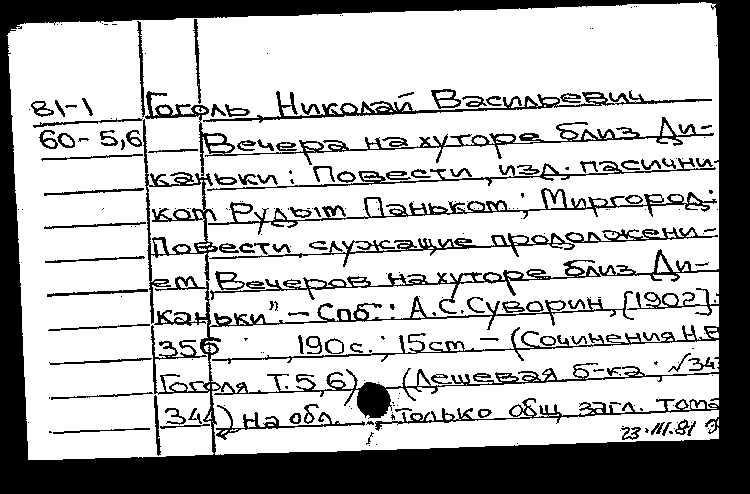 81-1 Гоголь, Николай Васильевич
60-5,6 Вечера на хуторе близ Ди-
каньки: Повести, изд. пасични-
ком Рудым Паньком; Миргород:
Повести, служащие продолжени-
ем „Вечеров на хуторе близ Ди-
каньки". — Спб.: А.С.Суворин, [1902].
356, 190 с.; 15 см. — (Сочинения Н.В
Гоголя. Т.5,6) (Дешевая б-ка; №343
344) На обл. только общ. загл. тома
23.III.81